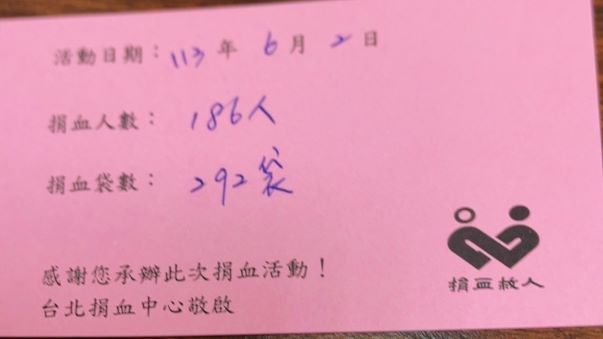 活動日期：113年6月2日
捐血人數：186人
捐血袋數：292袋
感謝您承辦此次捐血活動！
台北捐血中心敬啟
捐血救人